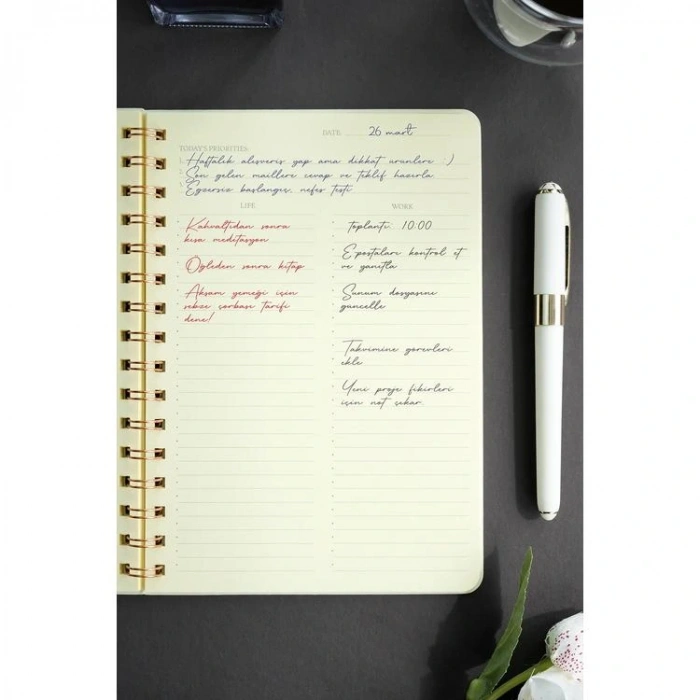 DATE: 26 mart
TODAY'S PRIORITIES:
Haftalık alışveriş yap ama dikkat ürünlere :)
Son gelen maillere cevap ve teklif hazırla.
Egzersiz başlangıç, nefes testi
LIFE
WORK
Kahvaltıdan sonra
kısa meditasyon
Öğleden sonra kitap
Akşam yemeği için
sebze çorbası tarifi
dene!
toplantı: 10:00
E-postaları kontrol et
ve yanıtla
Sunum dosyasını
güncelle
Takvimine görevleri
ekle
Yeni proje fikirleri
için not çıkar.